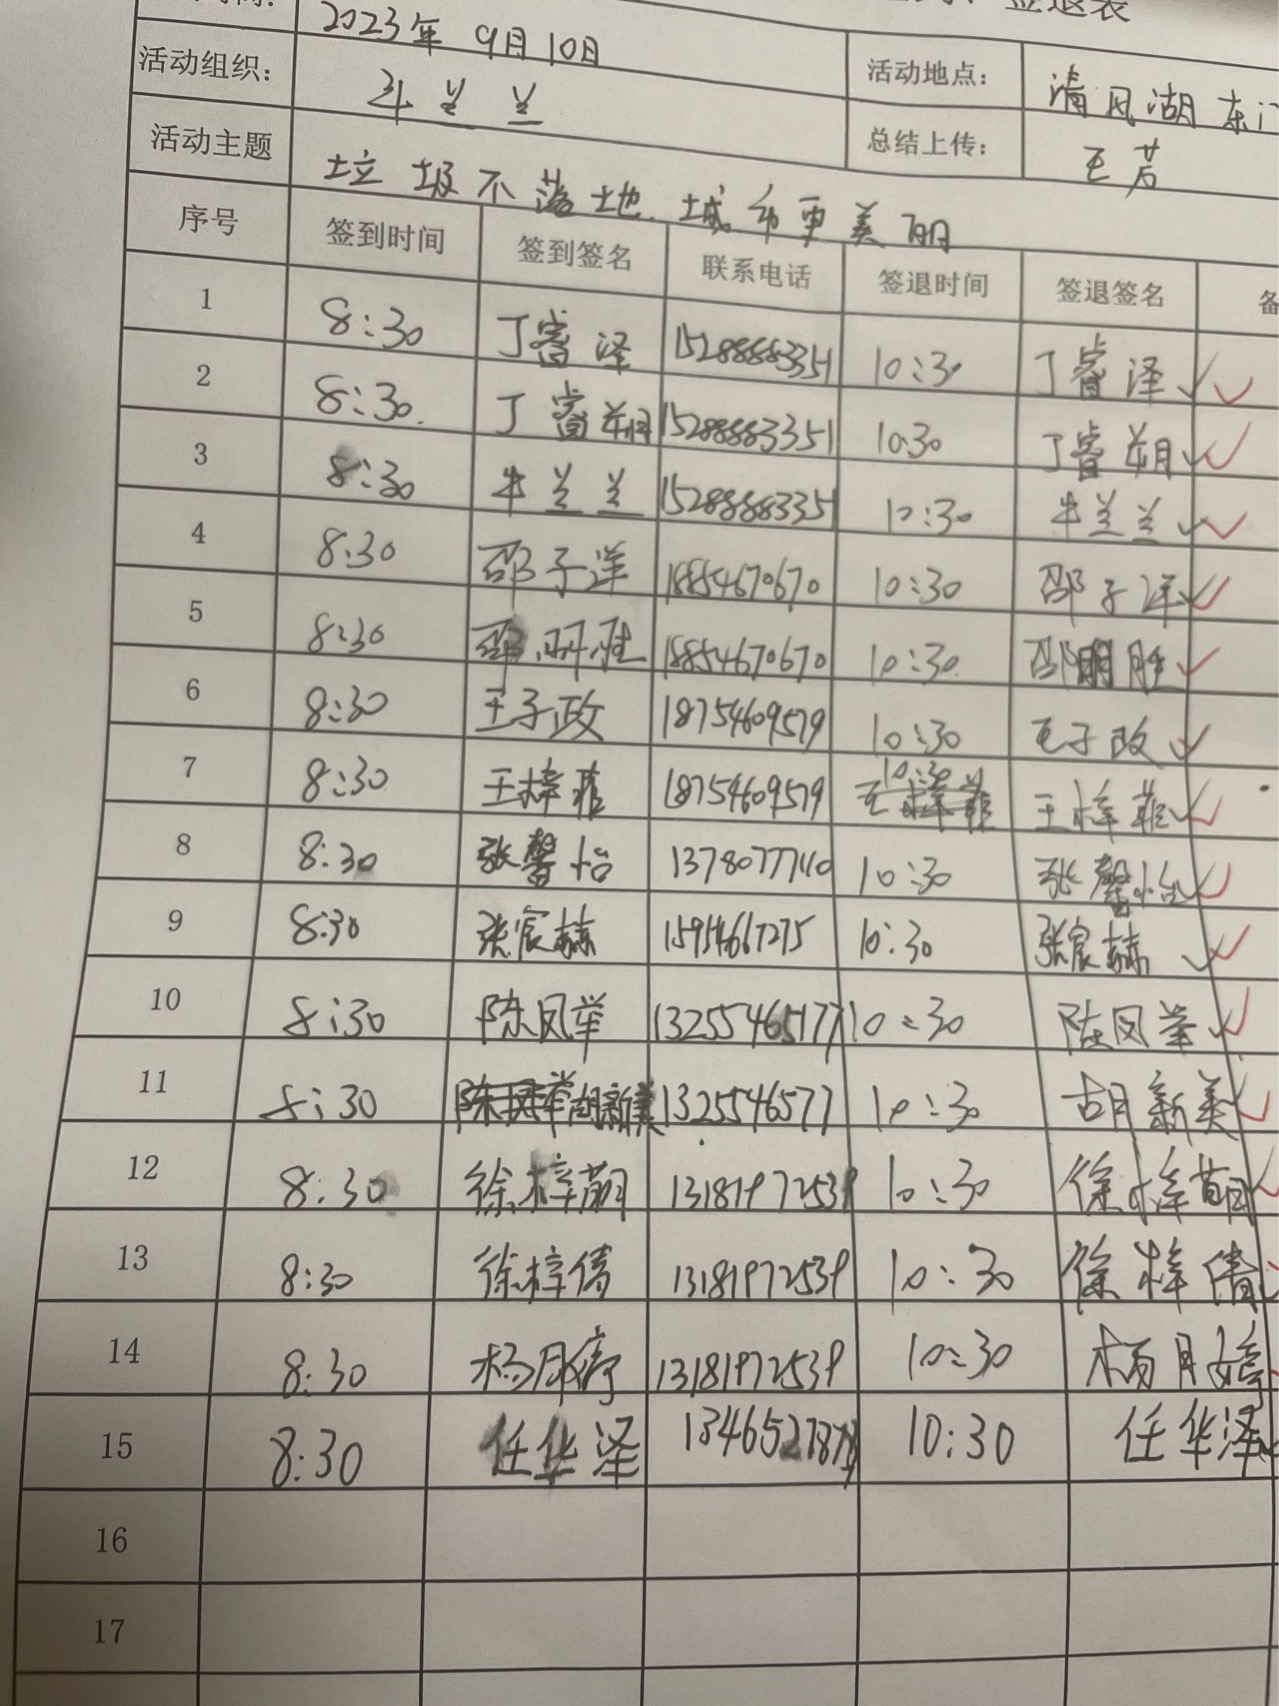 签退表
2023年 9月10日
活动组织： 牛兰兰 活动地点： 清风湖东门
活动主题 垃圾不落地 城市更美丽 总结上传： 王芳
序号 签到时间 签到签名 联系电话 签退时间 签退签名 备
1 8:30 丁睿泽 15288883351 10:30 丁睿泽
2 8:30 丁睿 15288883351 10:30 丁睿
3 8:30 牛兰兰 15288883351 10:30 牛兰兰
4 8:30 邵子洋 18854670670 10:30 邵子洋
5 8:30 邵明胜 18854670670 10:30 邵明胜
6 8:30 王子政 18754609579 10:30 王子政
7 8:30 王梓菲 18754609579 10:30 王梓菲
8 8:30 张馨怡 13780777410 10:30 张馨怡
9 8:30 张宸赫 15954667275 10:30 张宸赫
10 8:30 陈凤举 13255465177 10:30 陈凤举
11 8:30 胡新美 1325546577 10:30 胡新美
12 8:30 徐梓萌 13181972539 10:30 徐梓萌
13 8:30 徐梓倩 13181972539 10:30 徐梓倩
14 8:30 杨月婷 13181972539 10:30 杨月婷
15 8:30 任华泽 10:30 任华泽
16
17